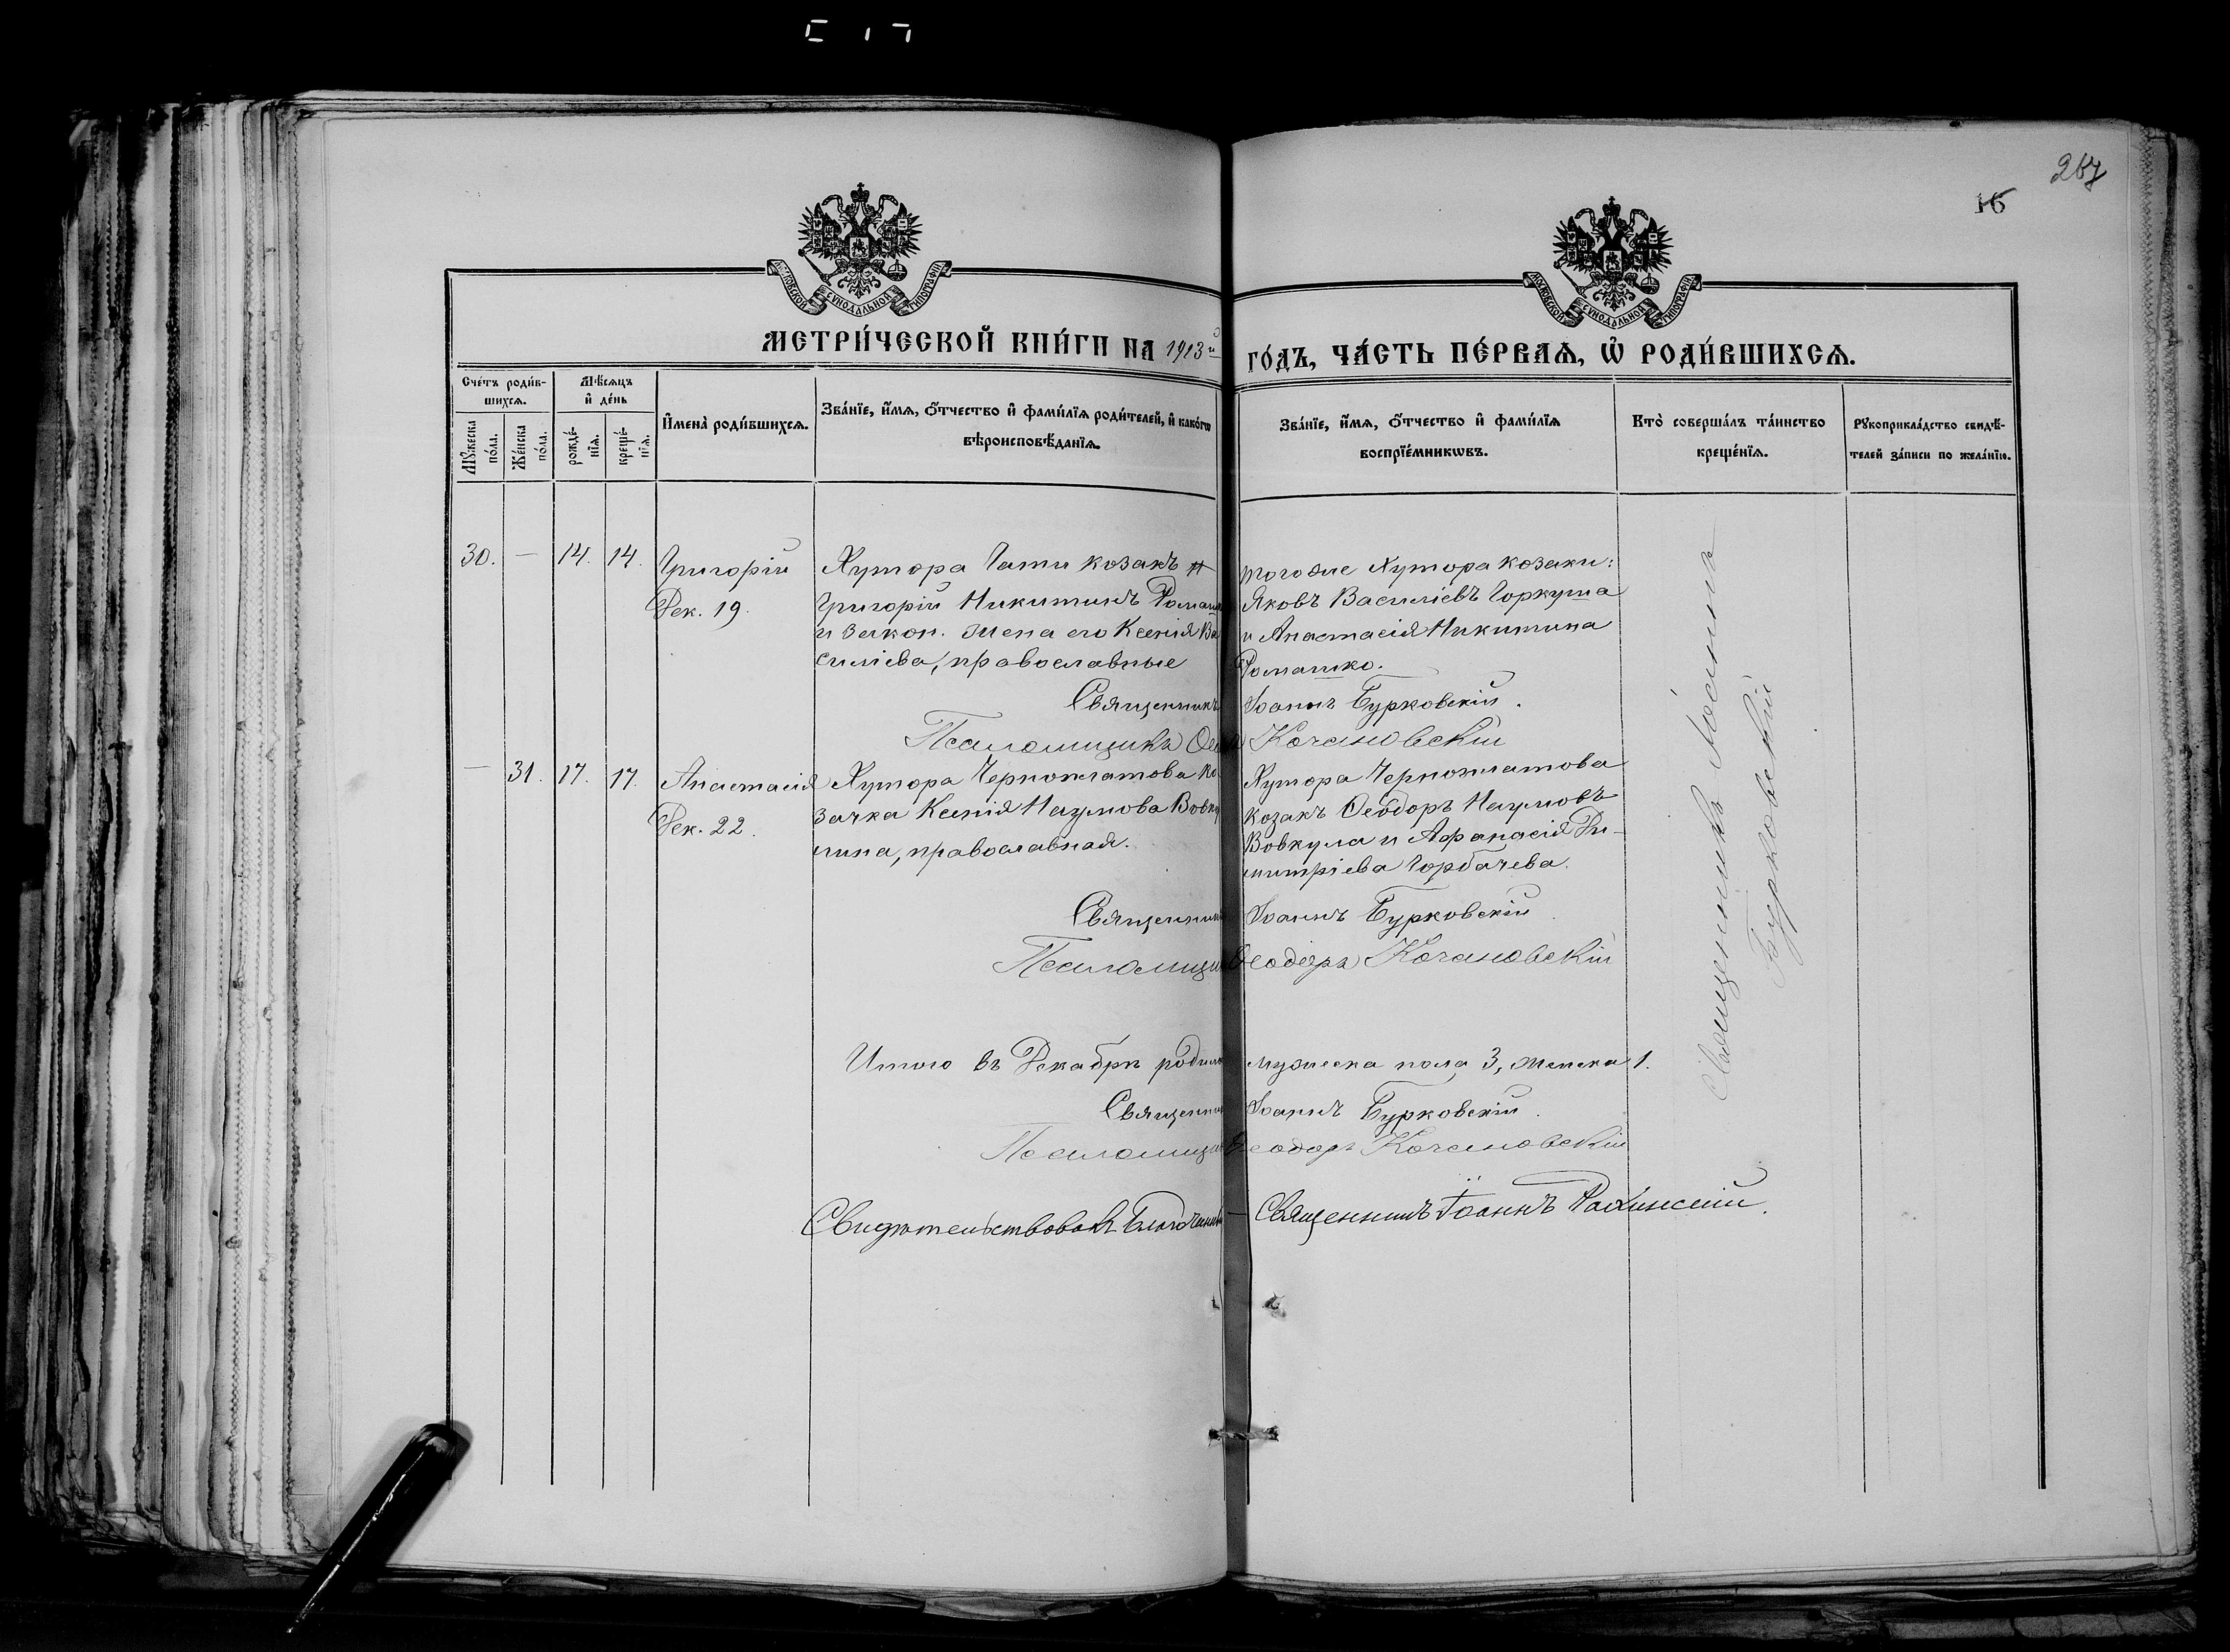 267
16
МОСКОВСКОЙ СѴНОДАЛЬНОЙ ТИПОГРАФІИ
МОСКОВСКОЙ СѴНОДАЛЬНОЙ ТИПОГРАФІИ
МЕТРИ́ЧЕСКОЙ КНИ́ГИ НА 1913й ГО́ДЪ, ЧА́СТЬ ПЕ́РВАѦ, Ѡ҆ РОДИ́ВШИХСѦ.
Сче́тъ роди́в-
шихсѧ.
Мꙋ́жеска
по́ла.
Же́нска
по́ла.
Мѣ́сѧцъ
и҆ де́нь
рожде́-
нїѧ.
креще́-
нїѧ.
И҆мена̀ роди́вшихсѧ.
Зва́нїе, и҆́мѧ, ѻ҆́тчество и҆ фами́лїѧ роди́телей, и҆ како́гѡ
вѣроисповѣ́данїѧ.
Зва́нїе, и҆́мѧ, ѻ҆́тчество и҆ фами́лїѧ
воспрїе́мникѡвъ.
Кто̀ соверша́лъ та́инство
креще́нїѧ.
Рꙋкоприкла́дство свидѣ́-
телей за́писи по жела́нїю.
30. — 14. 14.
Григорій
Дек. 19.
Хутора Гати козакъ
Григорій Никитинъ Ромаш
и закон. жена его Ксенія Ва
силіева, православные
тогоже Хутора козаки:
Яковъ Василіевъ Горкуша
и Анастасія Никитина
Ромашко.
Священникъ Іоаннъ Бурковскій.
Псаломщикъ Кочановскій
— 31. 17. 17.
Анастасія
Дек. 22.
Хутора Черноплатова ко
зачка Ксенія Наумова Вовку
лина, православная.
Хутора Черноплатова
козакъ Ѳеодоръ Наумовъ
Вовкула и Афанасія Ди-
митріева Горбачева.
Священникъ Іоаннъ Бурковскій
Псаломщик Ѳеодоръ Кочановскій
Священникъ Іоаннъ
Бурковскій
Итого въ Декабрѣ родилось мужеска пола 3, женска 1.
Священник Іоаннъ Бурковскій.
Псаломщик Ѳеодоръ Кочановскій
Свидѣтельствовалъ Благочинный — Священникъ Іоаннъ